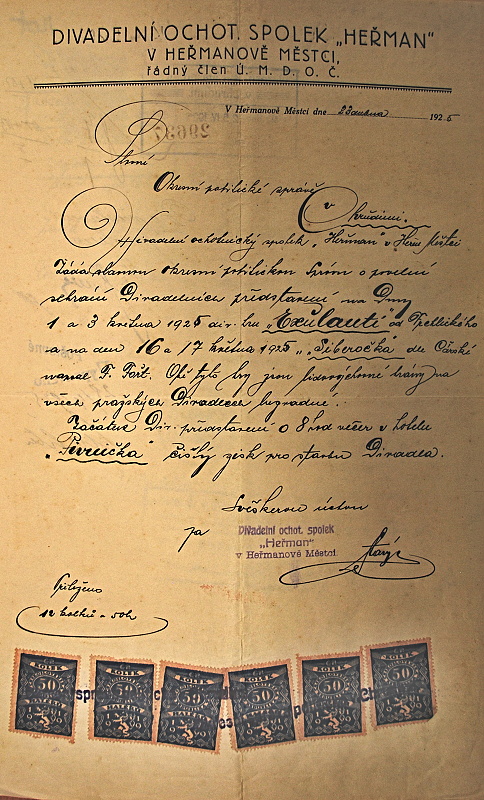 DIVADELNÍ OCHOT. SPOLEK „HEŘMAN"
V HEŘMANOVĚ MĚSTCI,
řádný člen Ú. M. D. O. Č.
V Heřmanově Městci dne 23 dubna 1925
Slavné
Okresní politické správě
v Chrudimi.
Divadelní ochotnický spolek „Heřman" v Heřm Městci
žádá slavnou okresní politickou správu o povolení
sehrání Divadelních představení na Dny
1 a 3 května 1925 div. hru „Exulanti" od Tyellického
a na den 16 a 17 května 1925 „Siberočka" de Carské
napsal F. Fořt. Obě tyto hry jsou lidovýchovné hrány na
všech pražských Divadlech
Začátek Div. představení o 8 hod večer v hotelu
„Písnička" čistý zisk pro stavbu Divadla.
V veškerou úctou
za
Divadelní ochot. spolek
„Heřman"
v Heřmanově Městci
Starý
Přiloženo
12 kolků a 50h
KOLEK KOLEK KOLEK KOLEK KOLEK KOLEK
50 50 50 50 50 50
HALÉŘŮ
1919